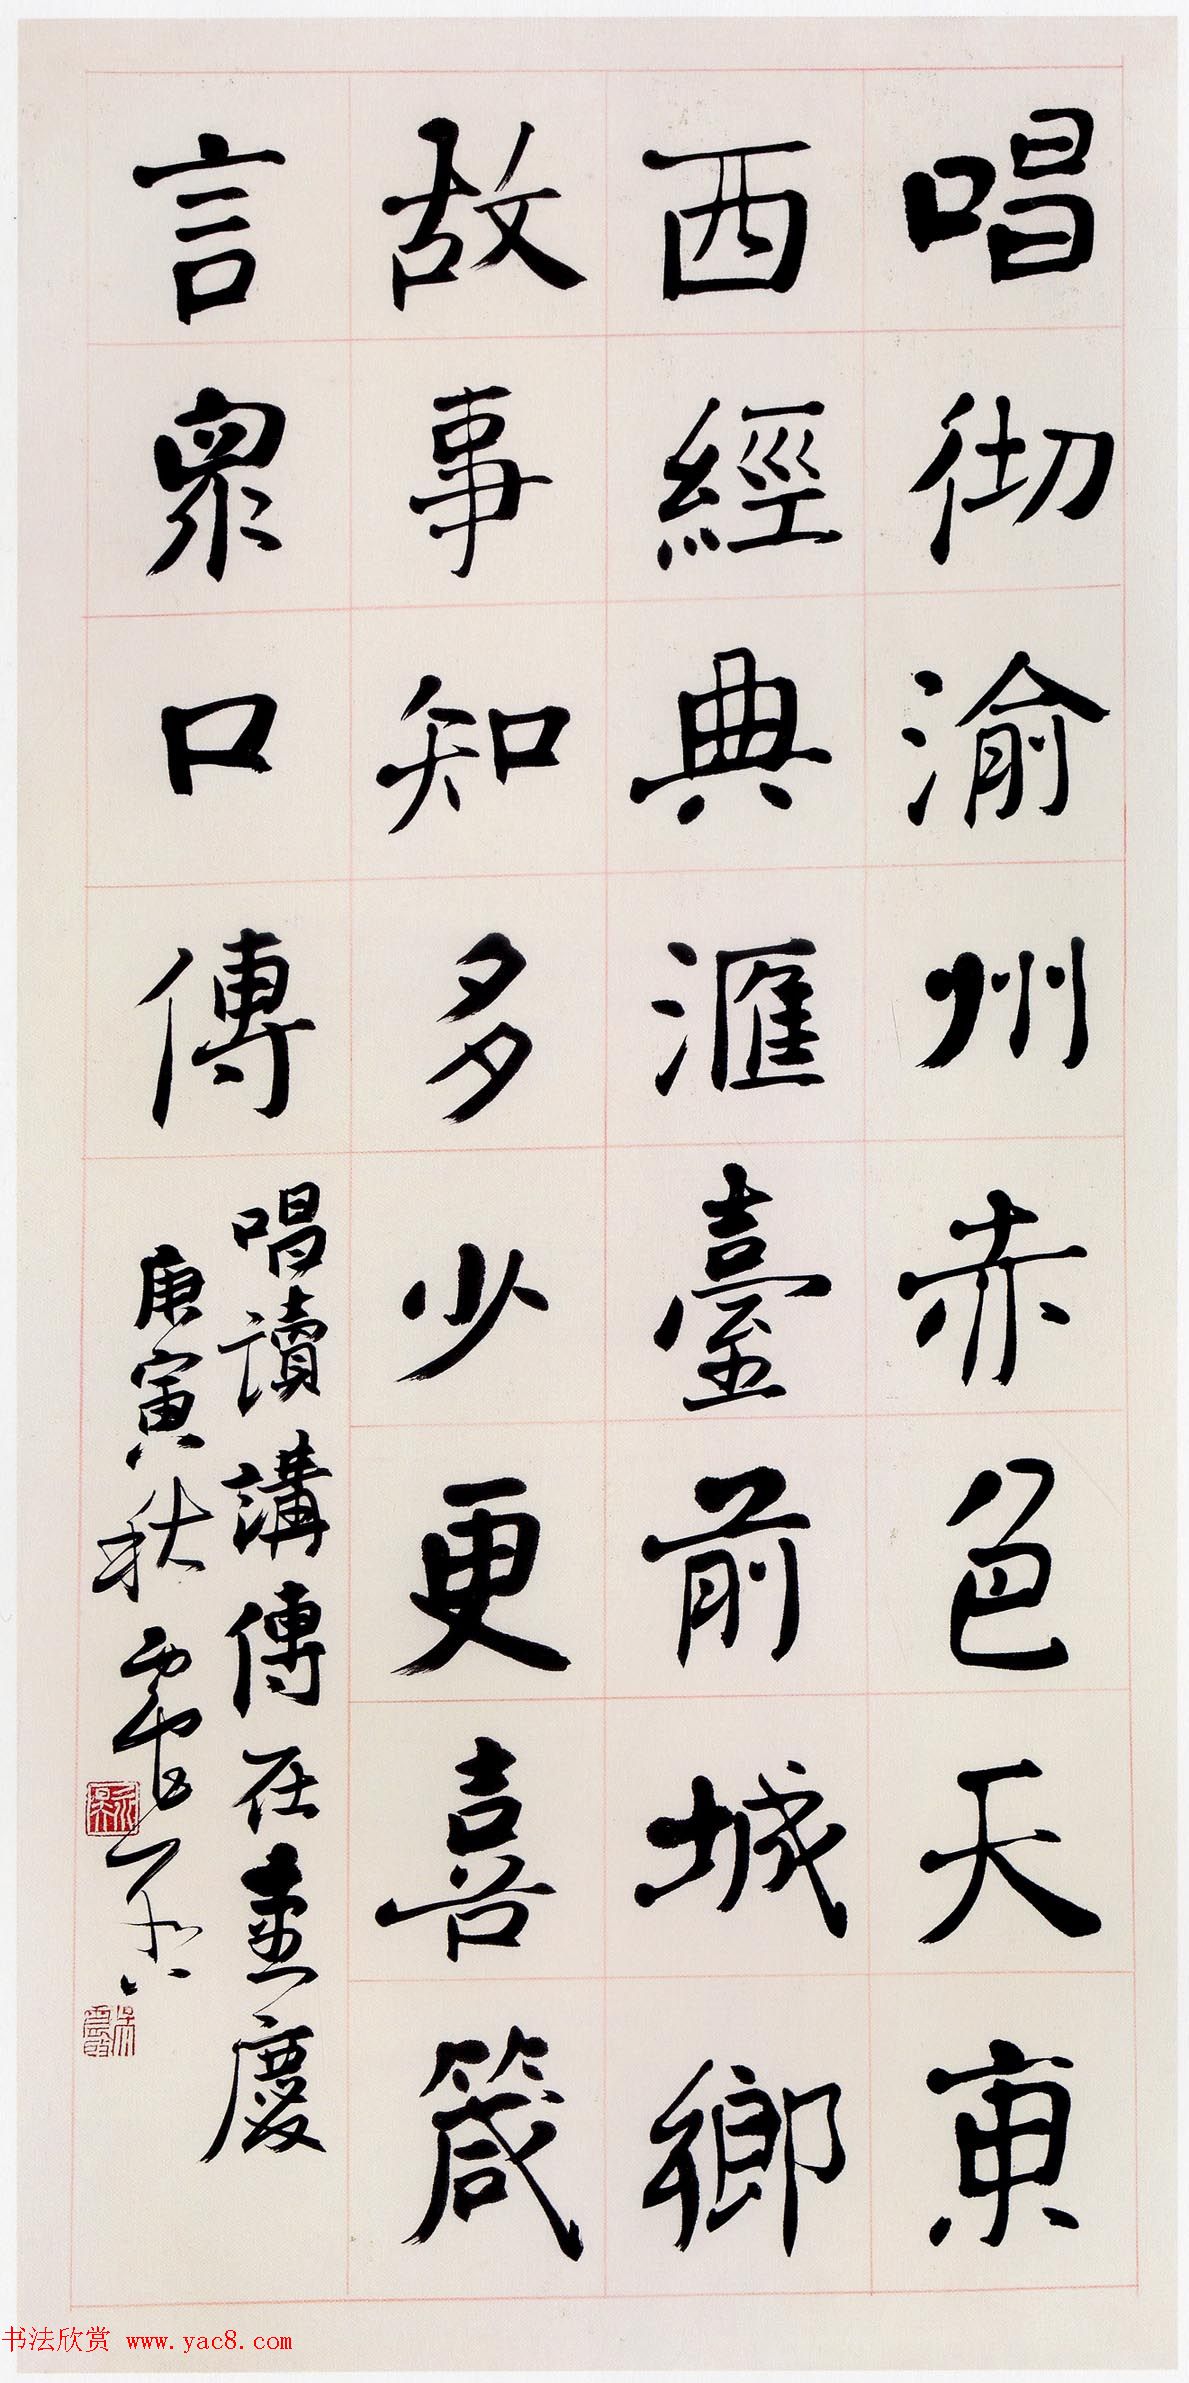 唱彻渝州赤色天東
西經典滙臺前城鄉
故事知多少更喜箴
言眾口傳
唱讀講傳在重慶
庚寅秋
书法欣赏 www.yac8.com